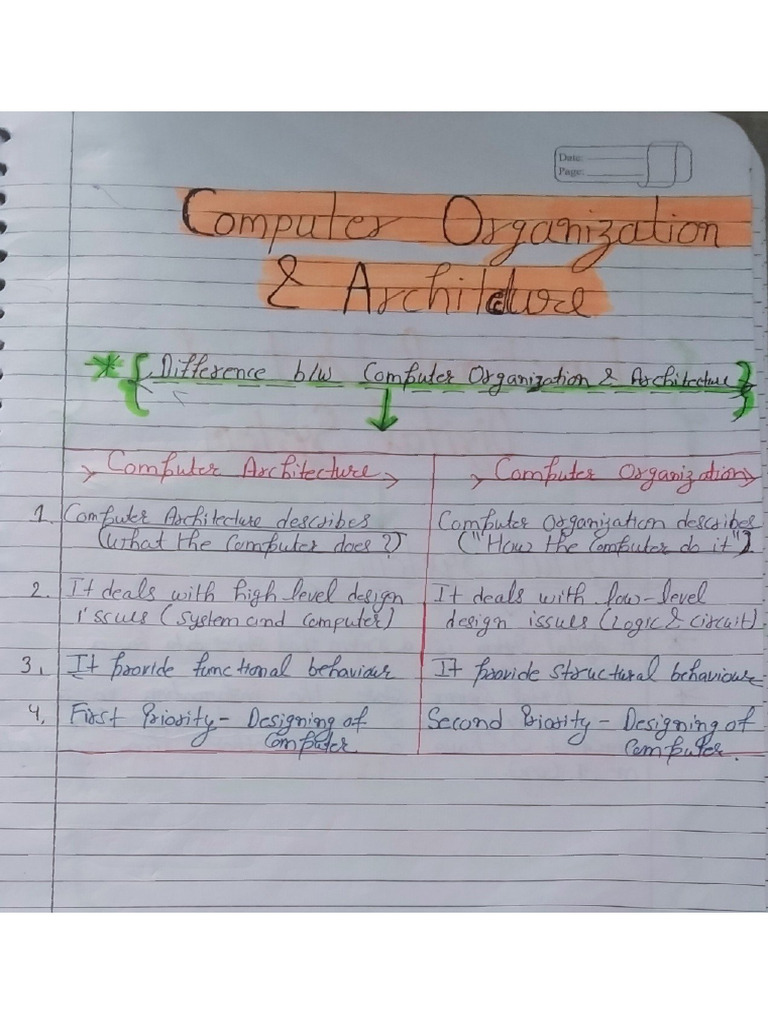 Date:
Page:
Computer Organization
& Architecture
* { Difference b/w Computer Organization & Architecture }
Computer Architecture
Computer Organization
1. Computer Architecture describes
(what the Computer does?)
Computer Organization describes
("How the Computer do it")
2. It deals with high level design
issues (system and computer)
It deals with low-level
design issues (Logic & circuit)
3. It provide functional behaviour
It provide structural behaviour
4. First Priority - Designing of
Computer
Second Priority - Designing of
Computer.